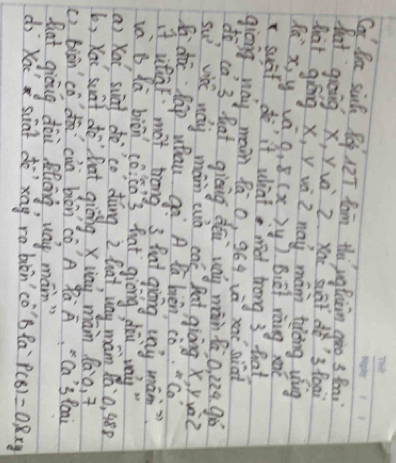 Thứ
Ngày
Các học sinh lớp 12T làm thí nghiệm gieo 3 loại
hạt giống X, Y và Z. Xác suất để 3 loại
hạt giống X, Y và Z nảy mầm tương ứng
là x, y và 0,8 (x > y). Biết rằng xác
suất để ít nhất một trong 3 hạt
giống nảy mầm là 0,964 và xác suất
để cả 3 hạt giống đều nảy mầm là 0,224. giả
sử việc nảy mầm của các hạt giống X, Y và Z
là độc lập nhau gọi A là biến cố: "Có
ít nhất một trong 3 hạt giống nảy mầm"
và B là biến cố: "cả 3 hạt giống đều nảy
a) Xác suất để có đúng 2 hạt nảy mầm là 0,488
b, Xác suất để hạt giống X nảy mầm là 0,7
c) biến cố đối của biến cố A là A: "Cả 3 loại
hạt giống đều không nảy mầm"
d) Xác suất để xảy ra biến cố B là P(B) = 0,8xy